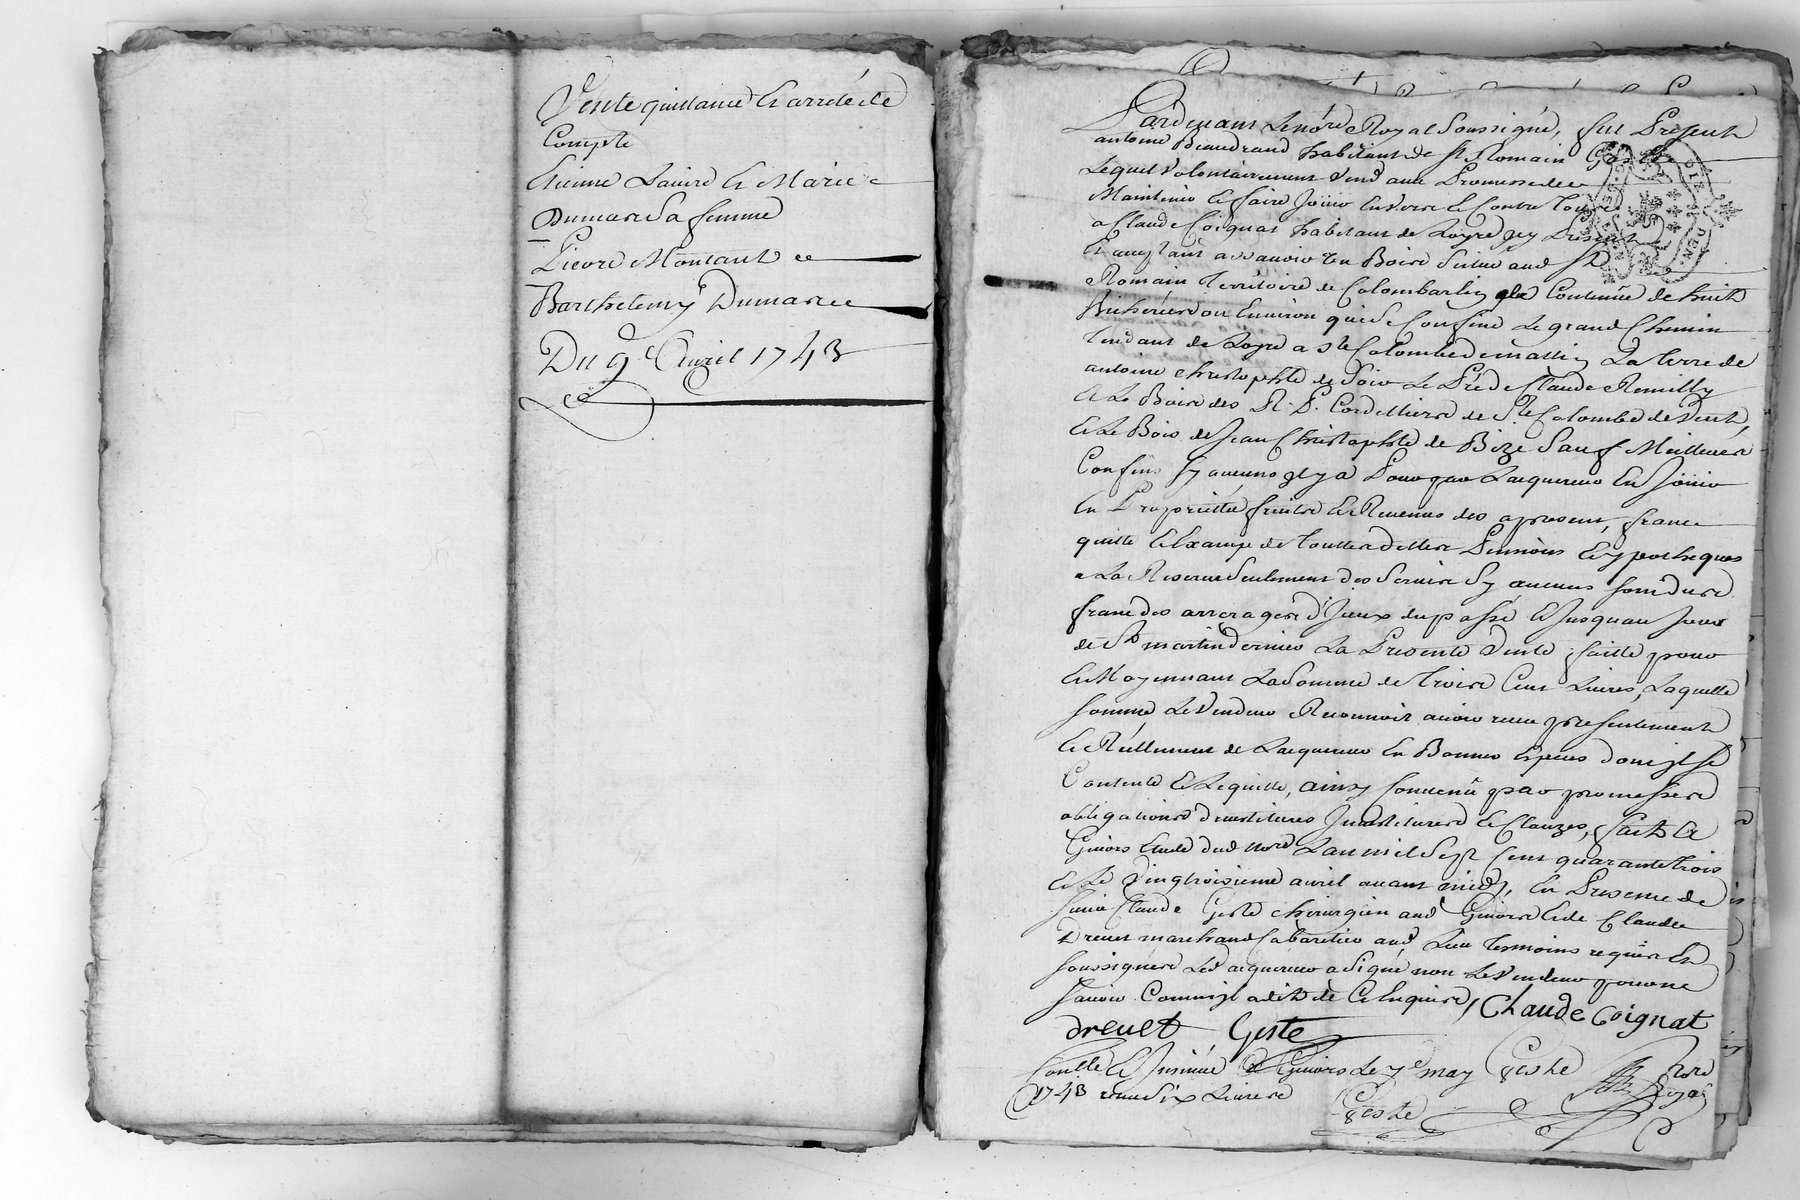 Vente quittance Et arreté de
Compte
Etienne Laure Et Marie
Dumare Sa femme
Pierre Montant
Barthelemy Dumare
Du 9e Avril 1743
Pardevant Le nore Royal Soussigné, fut Present
antoine Beaudrand habitant de St Romain
Lequel volontairement vend avec Promesse de
Maintenir Et faire Jouir Envers Et Contre Tous
a Claude Coignat habitant de Loyre Icy Present
Et aceptant assavoir Un Bois Situé aud St
Romain Territoire de Colombarley Contenüe de huit
Bicherées ou Environ qui Se Confine Le grand Chemin
Tendant de Loyre a Ste Colombe de matin La terre de
antoine christophle de Soir Le Pré de Claude Remilly
Et Le Bois des R. P. Cordelliers de Ste Colombe de Vent,
Et Le Bois de Jean Christophle de Bize Sauf Meilleurs
Confins Sy aucuns Il y a Pour par Lacquereur En Jouir
En Proprietté fruits Et Revenus des a present, franc
quitte Et Exampt de Touttes dettes Pensions Et ypotheques
a La Reserve Seulement des Servis Sy aucuns Sont Dus
franc des arrerages d'Iceux du passé Et Jusqu'au Jour
de St martin Dernier La Presente Vente faitte pour
Et Moyennant La Somme de Trois Cent Livres, Laquelle
Somme Le Vendeur Reconnoit avoir receu presentement
Et Réellement de Lacquereur En Bonnes Especes dont Il Se
Contente Et Le quitte, ainsy Convenû par promesses
obligations Et Clauzes, fait a
Givors Etude dud nore L'an mil Sept Cent quarante trois
Et Le Vingt troisieme avril avant midy, En Presence de
Sieur Claude Geste chirurgien aud Givors Et de Claude
Drevet marchand Cabaretier aud Lieu Temoins requis Et
Soussignés Led acquereur a Signé non Le Vendeur pour ne
Sçavoir Comme Il a dit de Ce Enquis, Claude Coignat
Drevet Geste
Conllé Et Insinué a Givors Le 7e may Geste nore Royal
1743 receu Six Livres
Geste